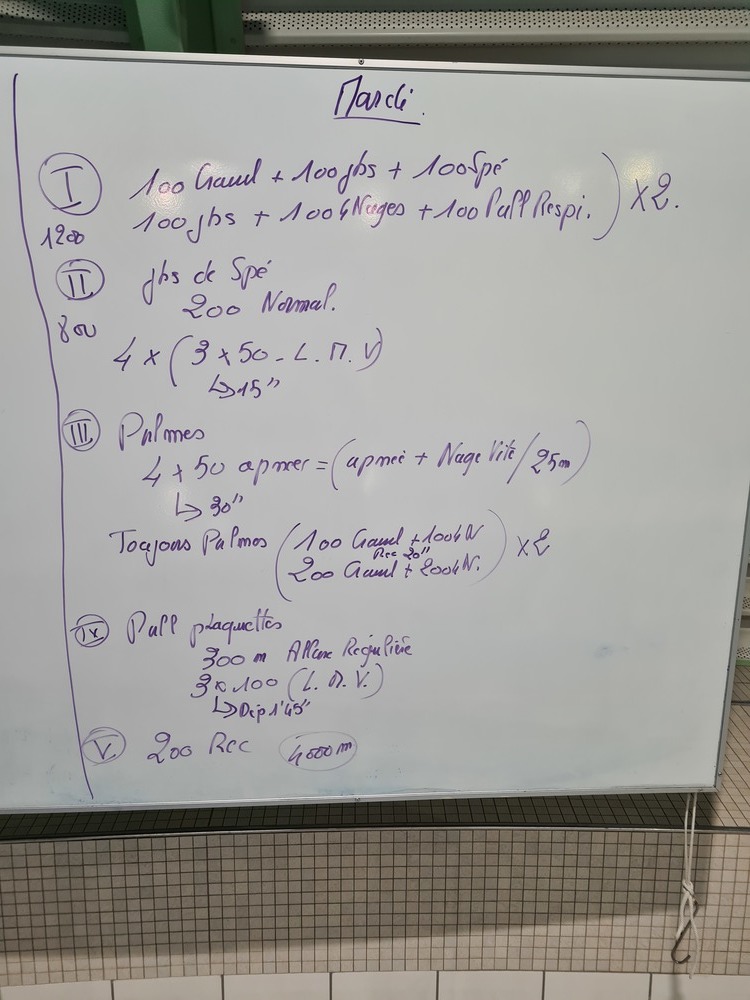 Mardi.
I 100 Crawl + 100 jbs + 100 Spé
100 jbs + 100 4 Nages + 100 Pull Respi. ) x2.
1200
II jbs de Spé
200 Normal.
800
4 x (3 x 50 - L. M. V)
↳ 15"
III Palmes
4 x 50 apnée = (apnée + Nage Vite / 25m)
↳ 30"
Toujours Palmes (100 Crawl + 100 4N
Rec 20"
200 Crawl + 200 4N.) x2
IV Pull plaquettes
300 m Allure Régulière
3 x 100 (L. M. V.)
↳ Dep 1'45"
V 200 Rec 4000 m